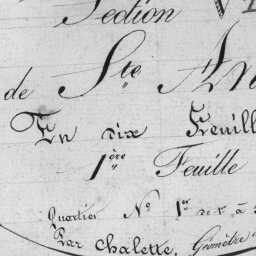 Section
de Ste An
En six Feuill
1ère Feuille
Quartier No 1er
Par Chalette, Géomètre